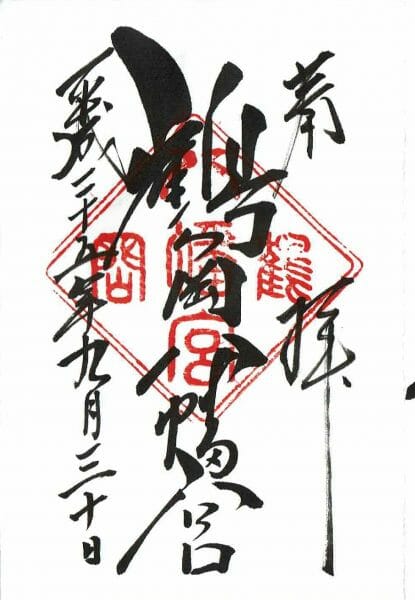 奉拝
鶴岡八幡宮
平成二十五年九月三十日
鶴岡八幡宮